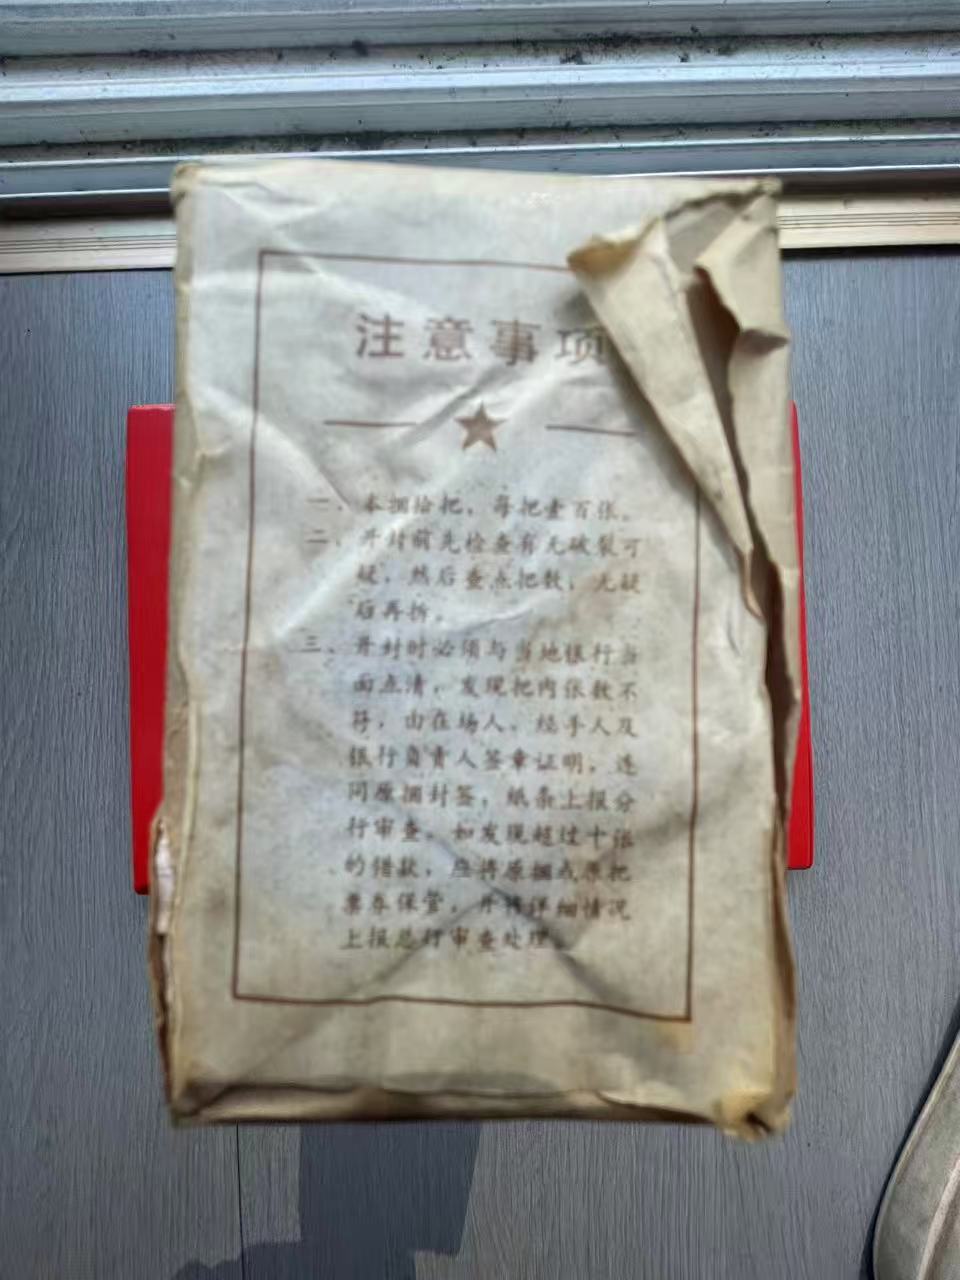 注意事项
一、本捆拾把,每把壹百张。
二、开封前先检查有无破裂可
疑,然后查点把数,无疑
后再拆。
三、开封时必须与当地银行当
面点清,发现把内张数不
符,由在场人、经手人及
银行负责人签章证明,连
同原捆封签,纸条上报分
行审查。如发现超过十张
的错款,应将原捆或原把
票券保管,并将详细情况
上报总行审查处理。